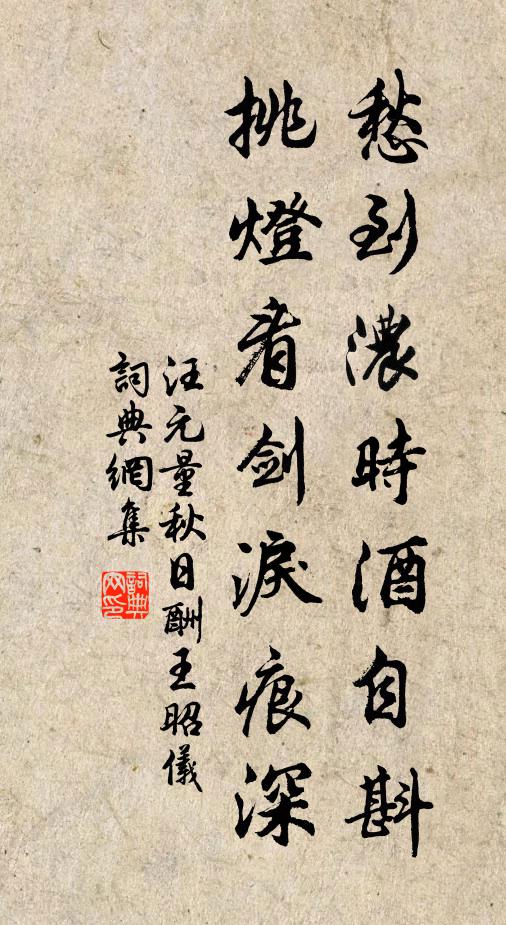 愁到濃時酒自斟
挑燈看剑淚痕深
汪元量秋日酬王昭儀
詞典網集
詞典網印